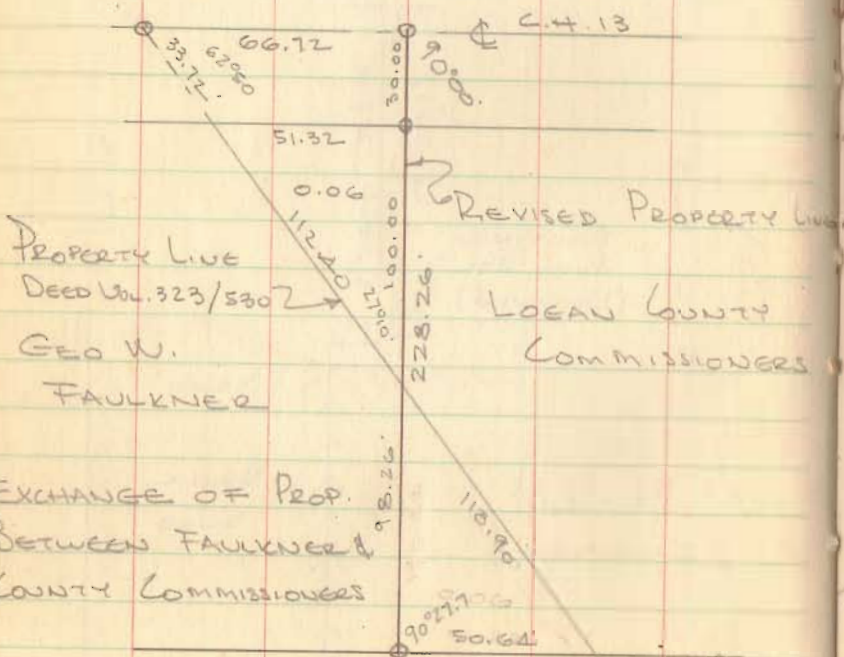 66.72
℄ C.H.13
33.72
62°50
30.00
90°00'
51.32
0.06
REVISED PROPERTY LINE
PROPERTY LINE
DEED VOL. 323/530
112.40
27°10'
100.00
228.26'
LOGAN COUNTY
COMMISSIONERS
GEO W.
FAULKNER
98.26'
118.90
EXCHANGE OF PROP.
BETWEEN FAULKNER &
COUNTY COMMISSIONERS
90°27.7
50.64